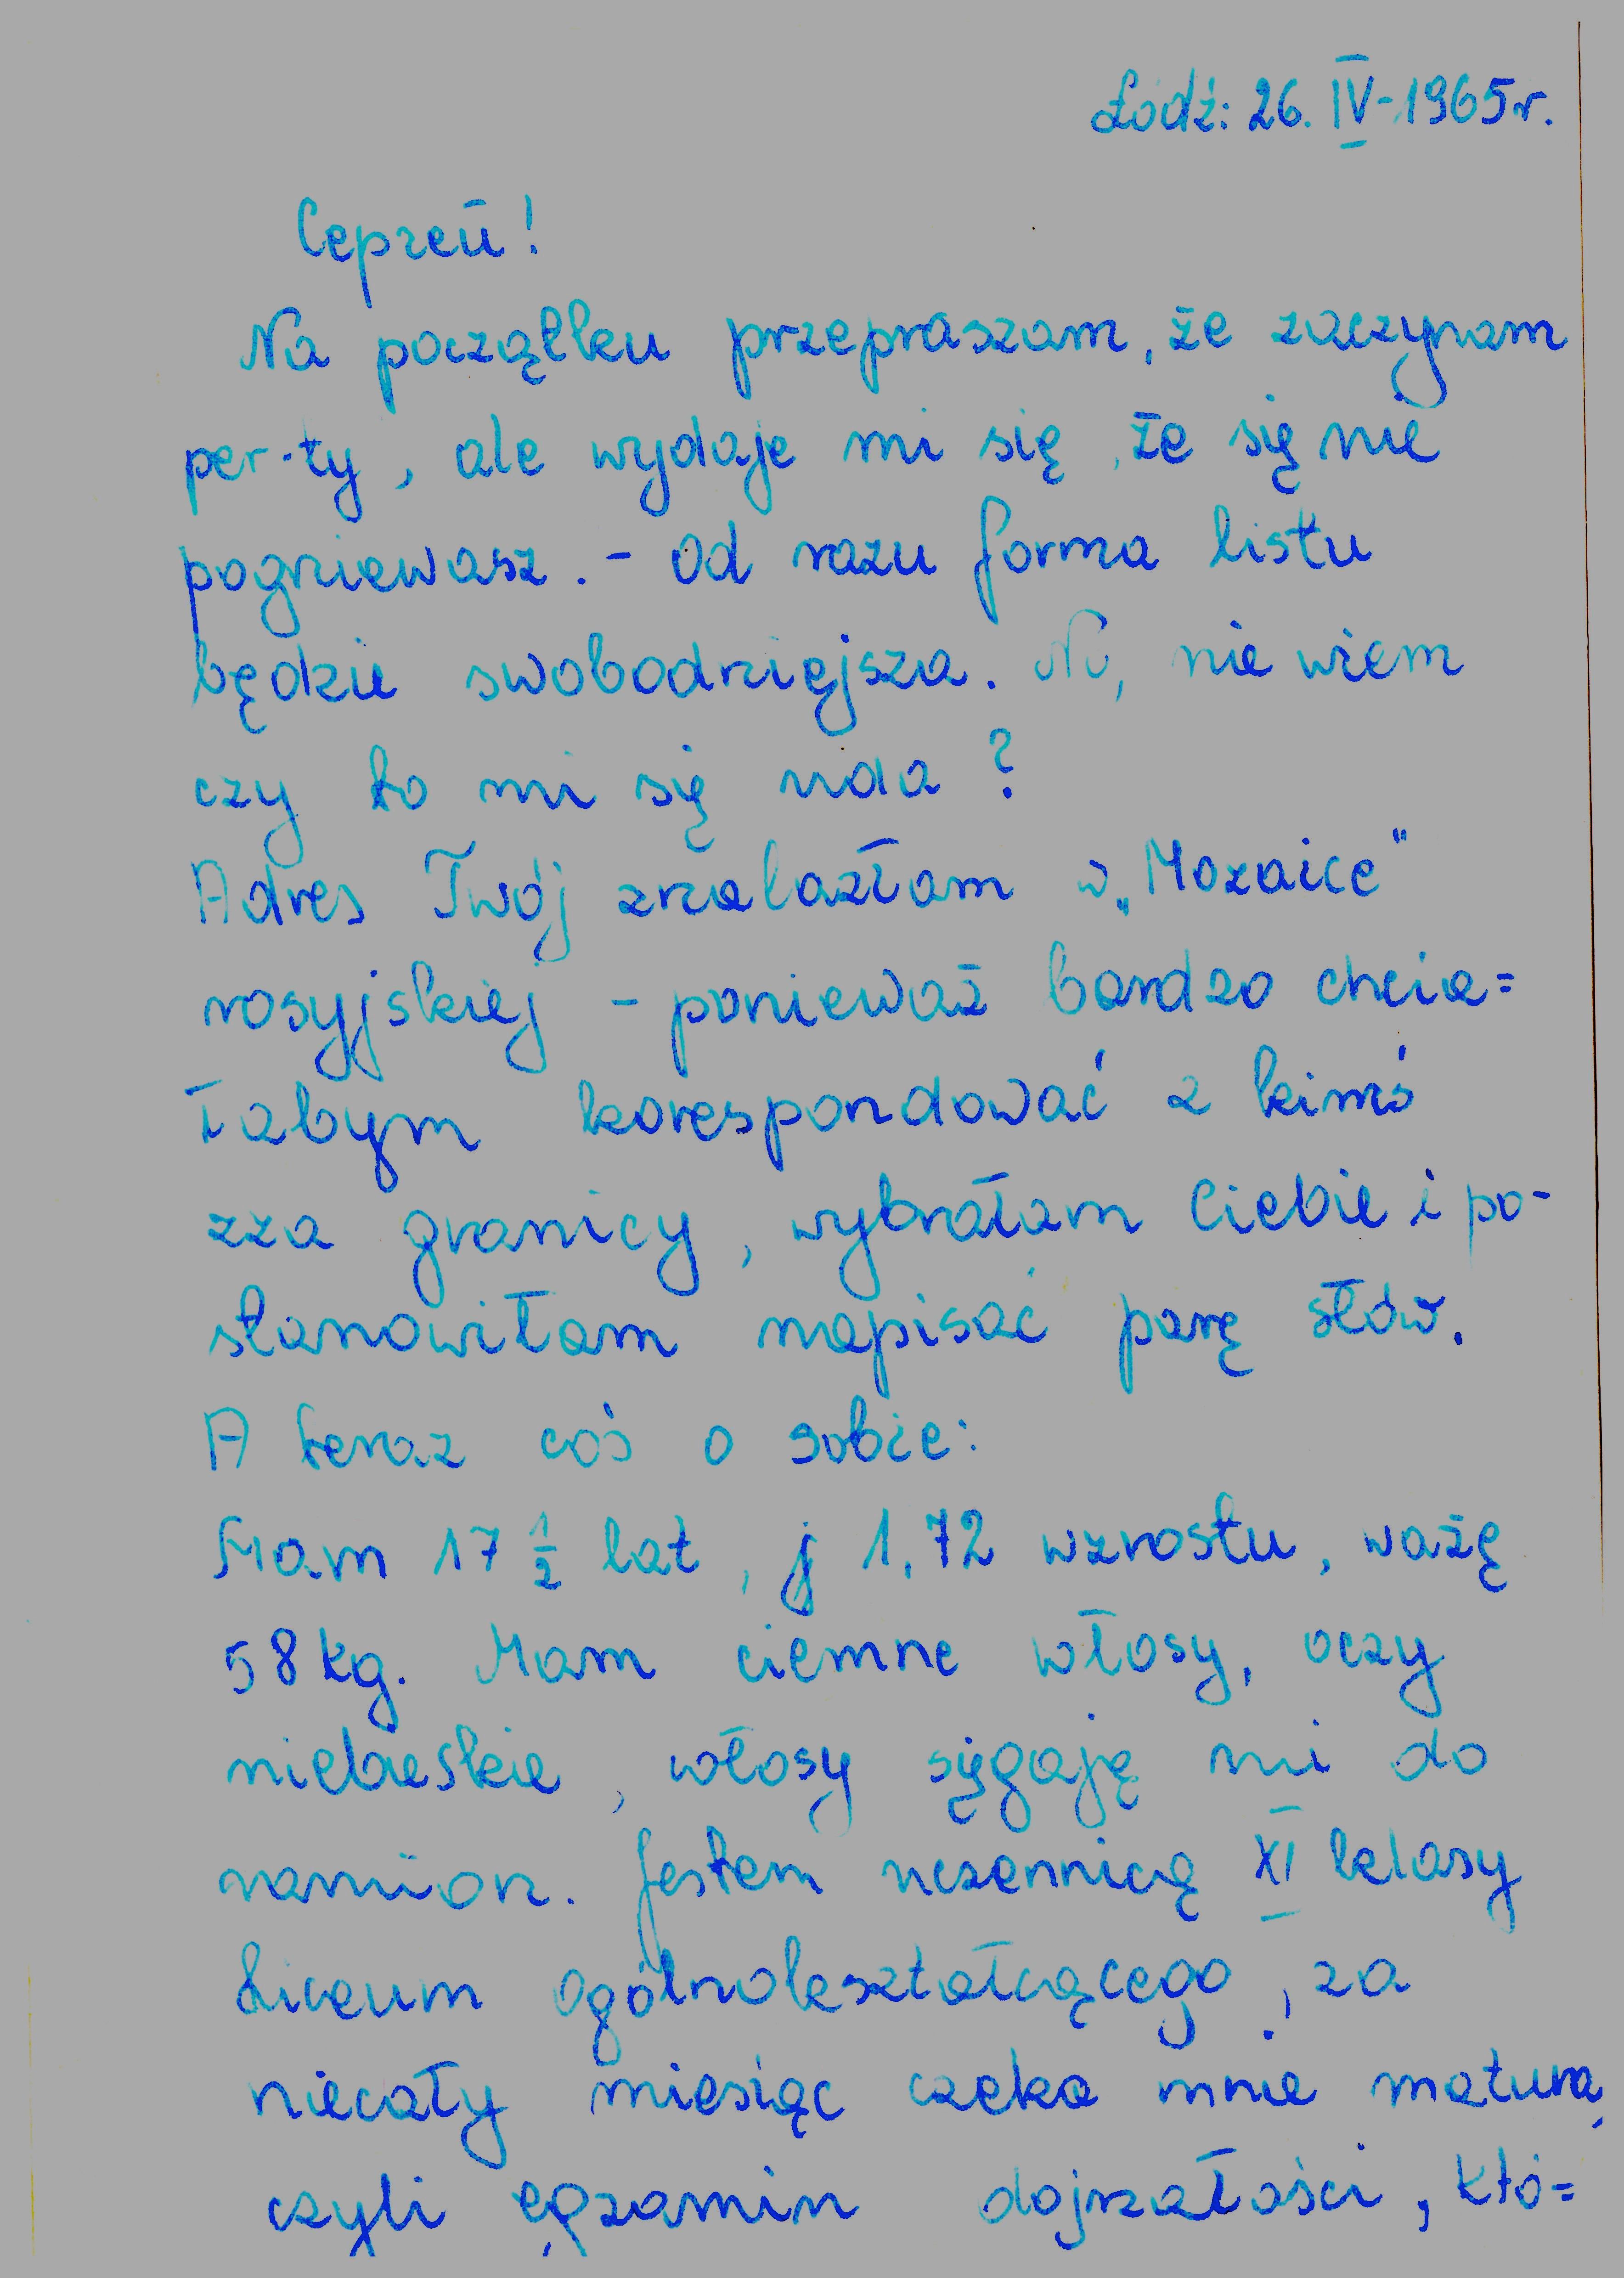 Łódź: 26. IV-1965r.
Сергей!
Na początku przepraszam, że zaczynam
per-ty, ale wydaje mi się, że się nie
pogniewasz. - Od razu forma listu
będzie swobodniejsza. No, nie wiem
czy to mi się uda?
Adres Twój znalazłam w „Mozaice"
rosyjskiej - ponieważ bardzo chcia=
łabym korespondować z kimś
zza granicy, wybrałam Ciebie i po-
stanowiłam napisać parę słów.
A teraz coś o sobie:
Mam 17 ½ lat, j 1,72 wzrostu, ważę
58 kg. Mam ciemne włosy, oczy
niebieskie, włosy sięgają mi do
ramion. Jestem uczennicą XI klasy
Liceum Ogólnokształcącego, za
niecały miesiąc czeka mnie matura,
czyli egzamin dojrzałości, któ=